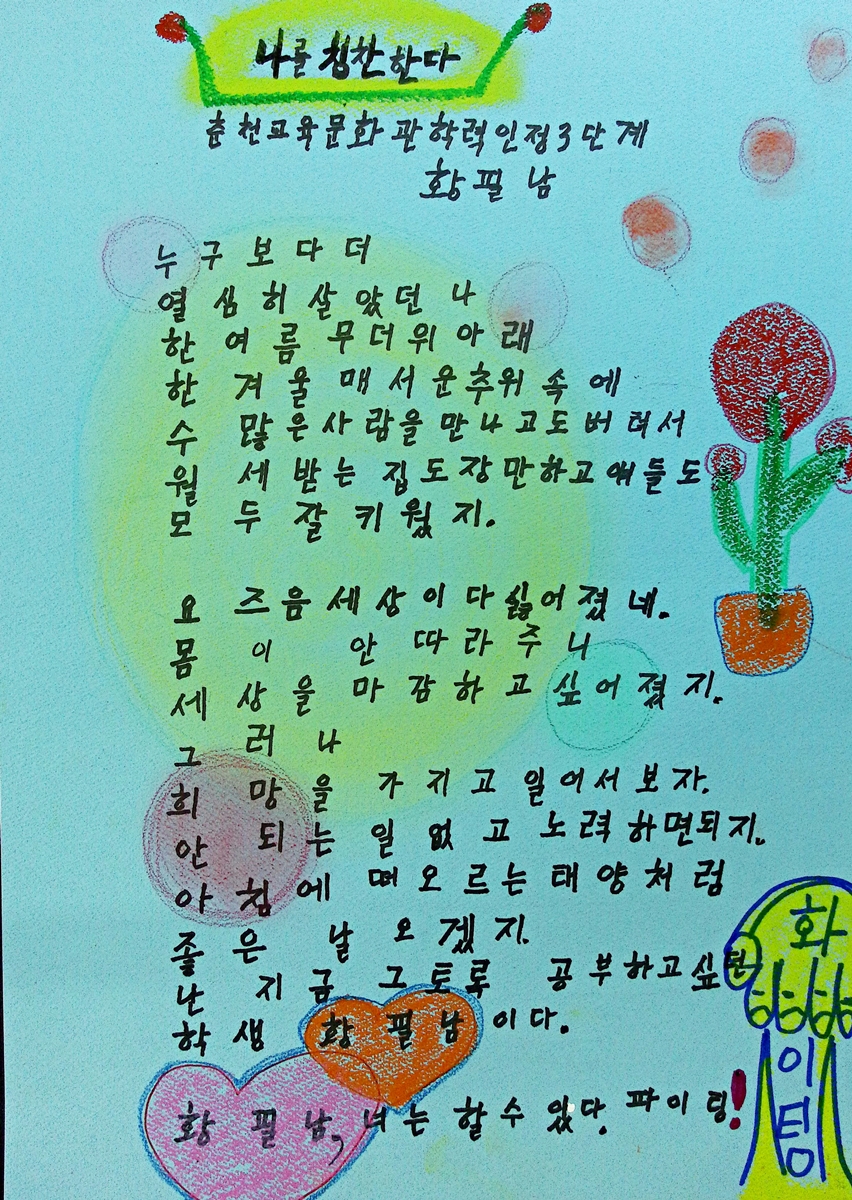 나를 칭찬한다
춘천교육문화관학력인정3단계
황필남
누구보다더
열심히살았던 나
한여름무더위아래
한겨울매서운추위속에
수많은사람을만나고도버텨서
월세받는집도장만하고애들도
모두잘키웠지.
요즈음세상이다싫어졌네.
몸이 안따라주니
세상을마감하고싶어졌지.
그러나
희망을가지고일어서보자.
안되는일없고노력하면되지.
아침에떠오르는태양처럼
좋은 날오겠지.
난지금그토록 공부하고싶던
학생황필남이다.
황필남, 너는할수있다. 파이팅!
화
이
팅